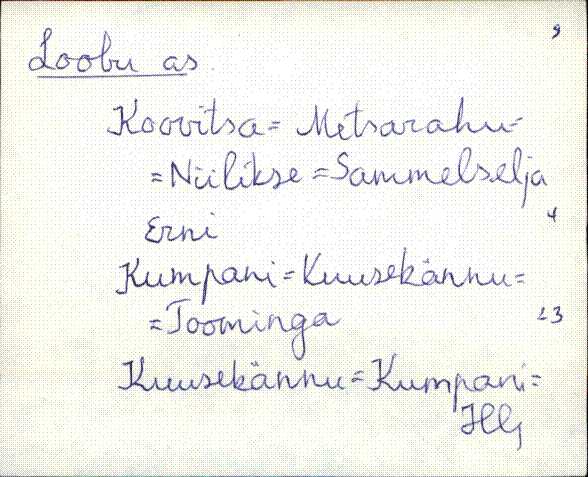 9
Loobu as.
Koovitsa = Metsarahu =
= Niilikse = Sammelselja
4
Erni
Kumpani = Kuusekännu =
= Toominga
13
Kuusekännu = Kumpani =